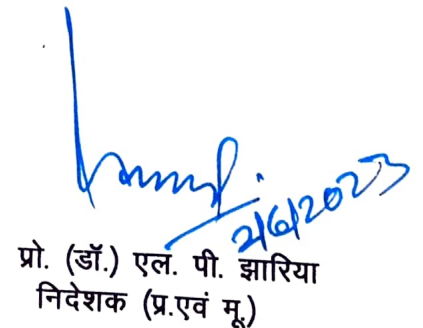 2/6/2023
प्रो. (डॉ.) एल. पी. झारिया
निदेशक (प्र.एवं मू.)